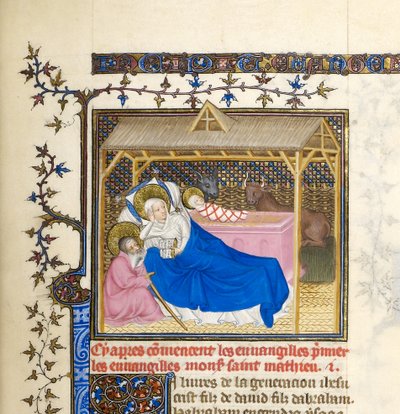 Cy apres cōmencent les euuangilles p̄mier
les euuangilles mons̄ saint mathieu. .i.
liures de la generacion ihesu
crist filz de dauid filz dabraham.